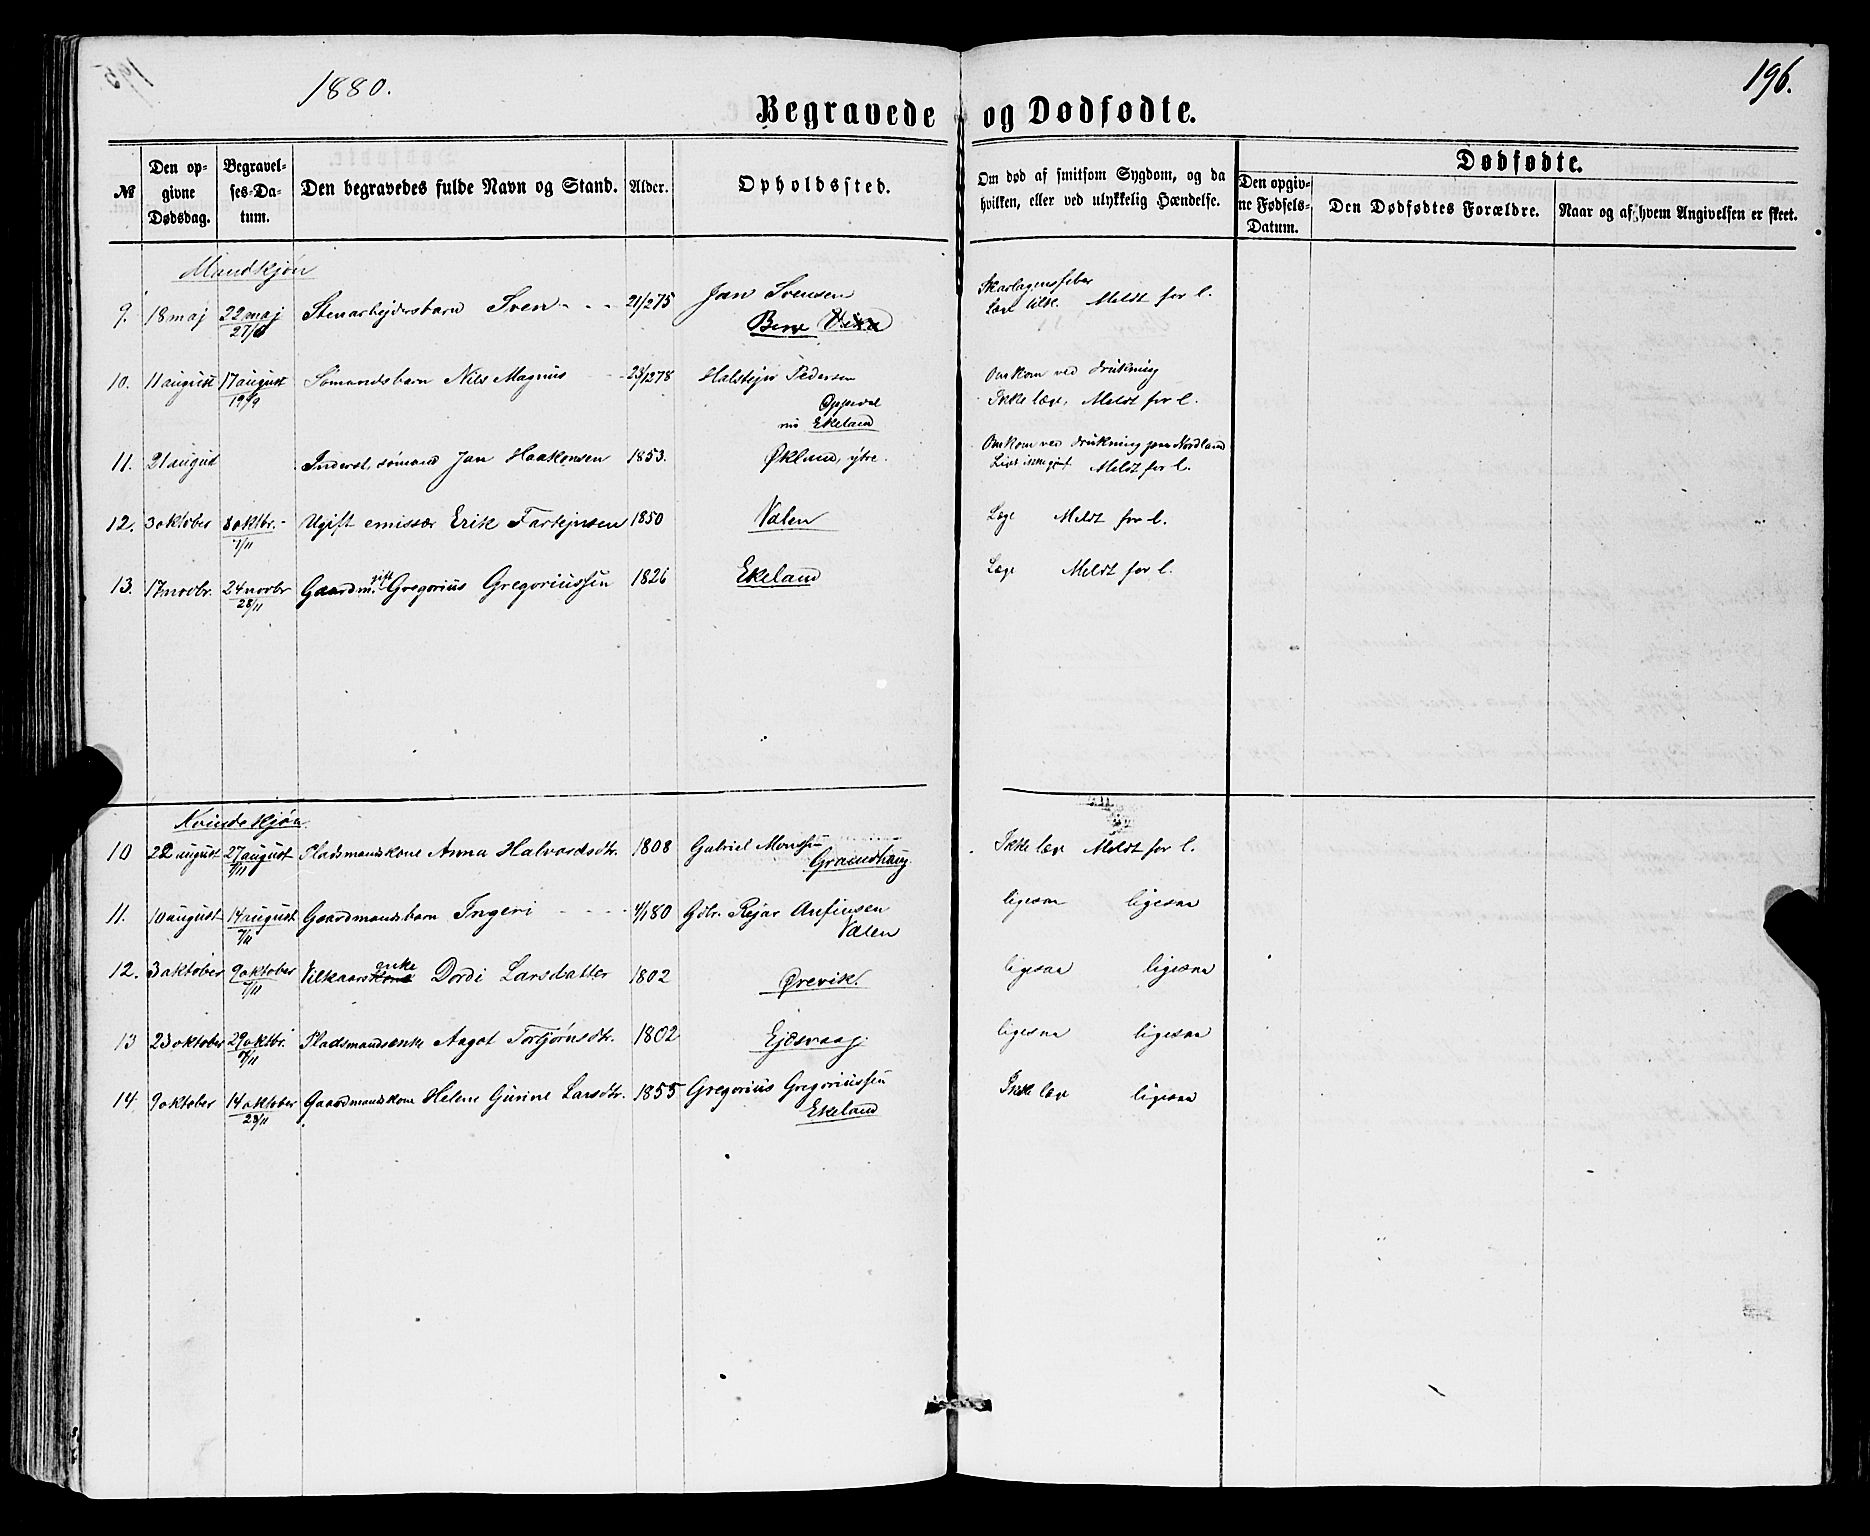 1880.
196.
Begravede og Dødfødte.
№
Den opgivne Dødsdag.
Begravelses-Datum.
Den begravedes fulde Navn og Stand.
Alder.
Opholdssted.
Om død af smitsom Sygdom, og da hvilken, eller ved ulykkelig Hændelse.
Dødfødte.
Den opgivne Fødsels-Datum.
Den Dødfødtes Forældre.
Naar og af hvem Angivelsen er skeet.
Mandkjøn
9. 18 maj 22 maj Stenarbejdersbarn Sven - - - 21/275 Jan Svensen Skarlagensfeber
Meldt for l.
10. 11 august 17 august Sømandsbarn Nils Magnus 23/1278 Halstejn Pedersen Omkom ved drukning
19/9 Ikke læge, Meldt for l.
Ekeland
11. 21 august Inderst, sømand Jan Haakonsen 1853. Økland, ytre. Omkom ved drukning Nordland
Meldt for l.
12. 3 oktober 8 oktbr. Ugift emissær Erik Tartejnsen 1850 Valen Læge Meldt for l.
1/11
13. 17 novbr. 24 novbr Gaardm. gift Gregorius Gregoriussen 1826 Ekeland Læge Meldt for l.
28/11
Kvindekjøn
10 22 august 27 august Pladsmandskone Anna Halvardsdtr. 1808 Gabriel Monssen Ikke læge Meldt for l.
7/11 Graanshaug
11. 10 august 14 august Gaardmandsbarn Ingeri - - - - 4/180 Gdbr. Rejar Anfinsen ligesaa ligesaa
7/11 Valen
12. 3 oktober 9 oktober Vilkaarsenke Dordi Larsdatter 1802 Ørevik. ligesaa ligesaa
7/11
13 23 oktober 29 oktbr. Pladsmandsenke Aagot Torbjørnsdtr. 1802 Ejdsvaag. ligesaa ligesaa
14 9 oktober 14 oktober Gaardmandskone Helene Gurine Larsdtr. 1855 Gregorius Gregoriussen Ikke læge ligesaa
23/11 Ekeland